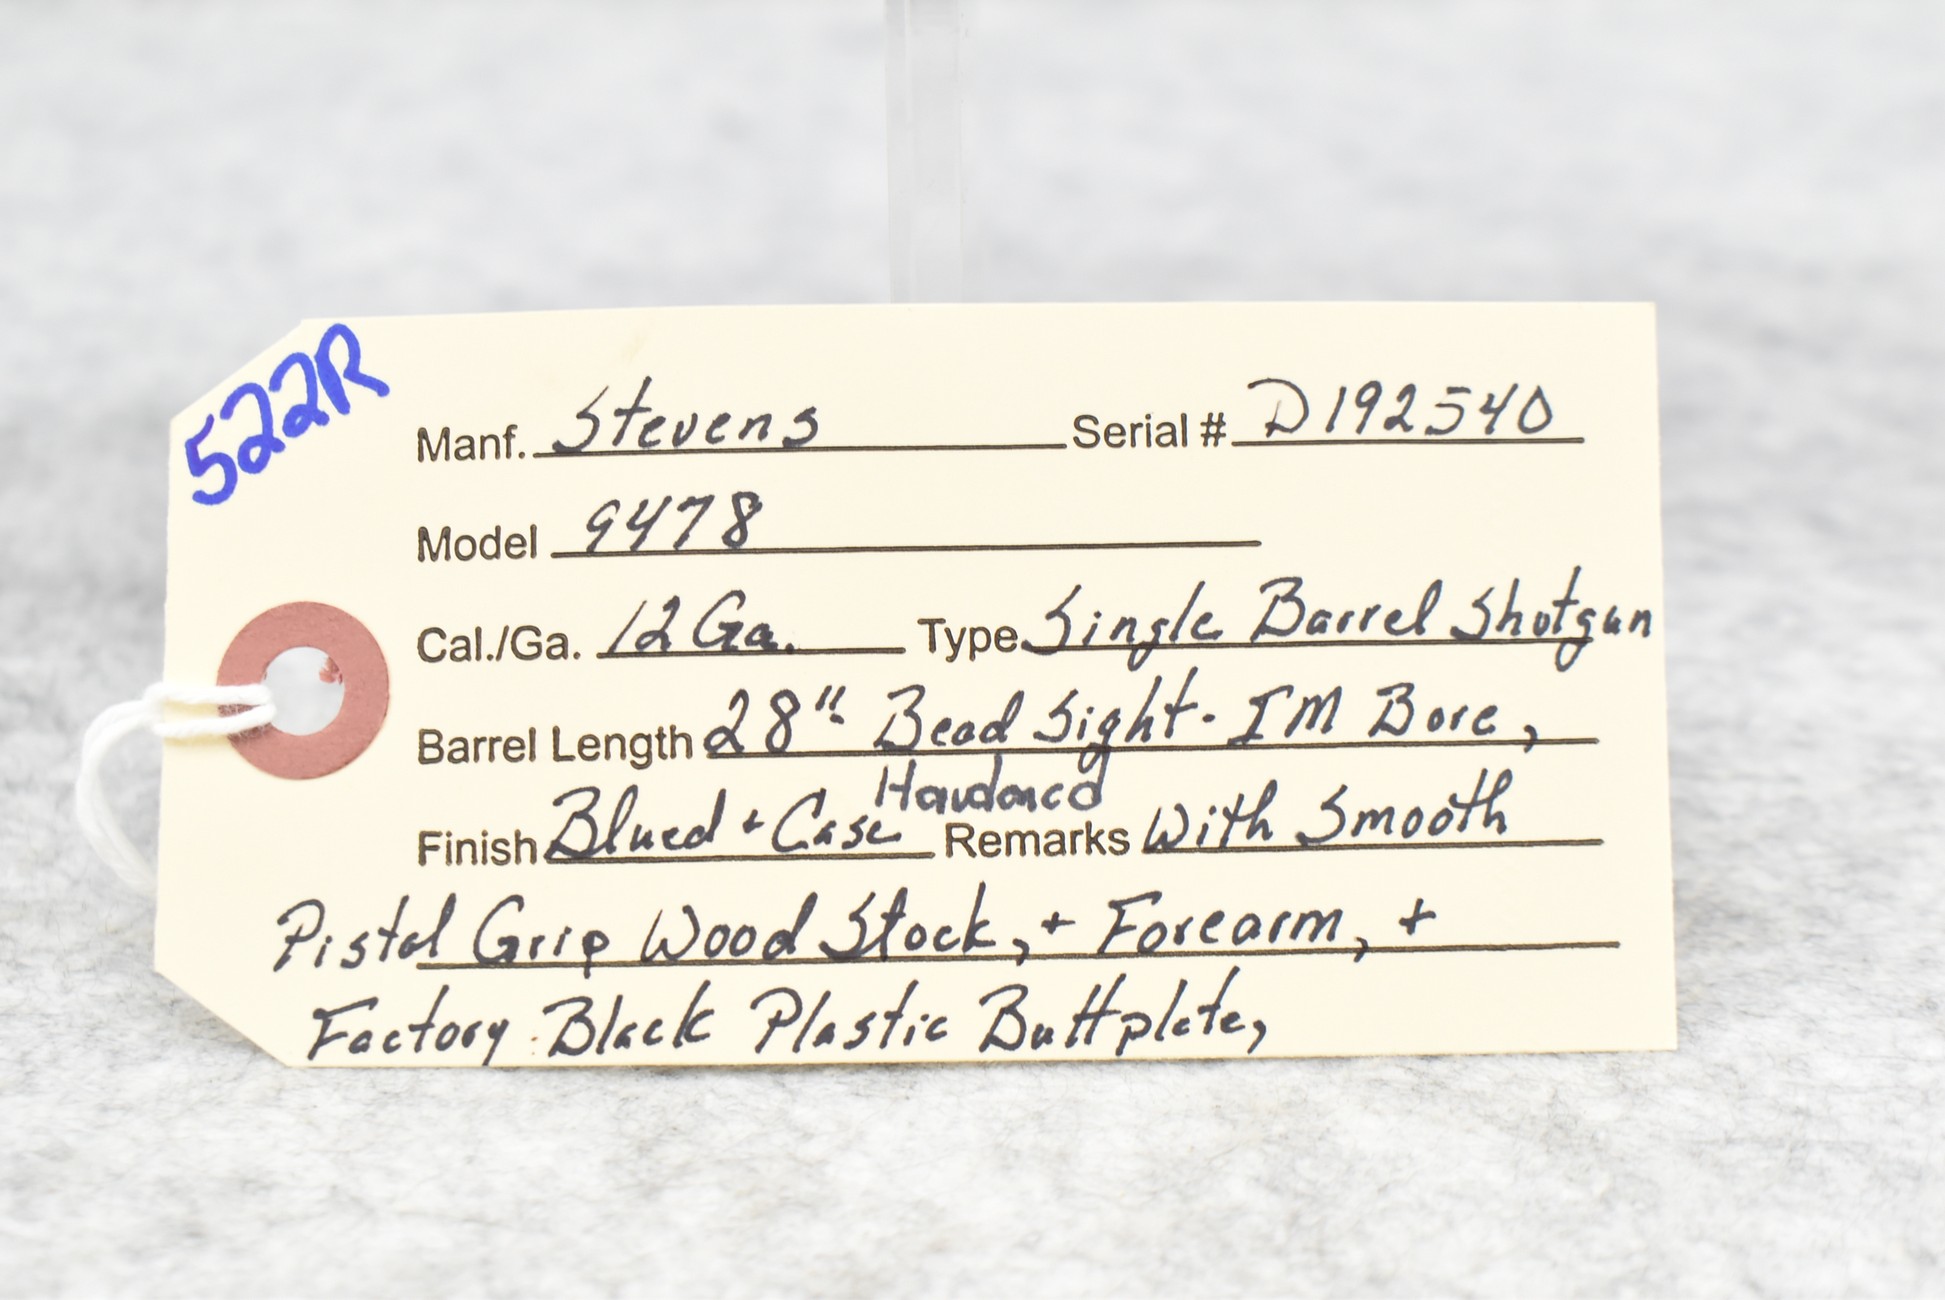 522R
Manf. Stevens Serial # D192540
Model 9478
Cal./Ga. 12 Ga. Type Single Barrel Shotgun
Barrel Length 28" Bead Sight - IM Bore,
Finish Blued + Case Hardened Remarks With Smooth
Pistol Grip Wood Stock, + Forearm, +
Factory Black Plastic Buttplate,